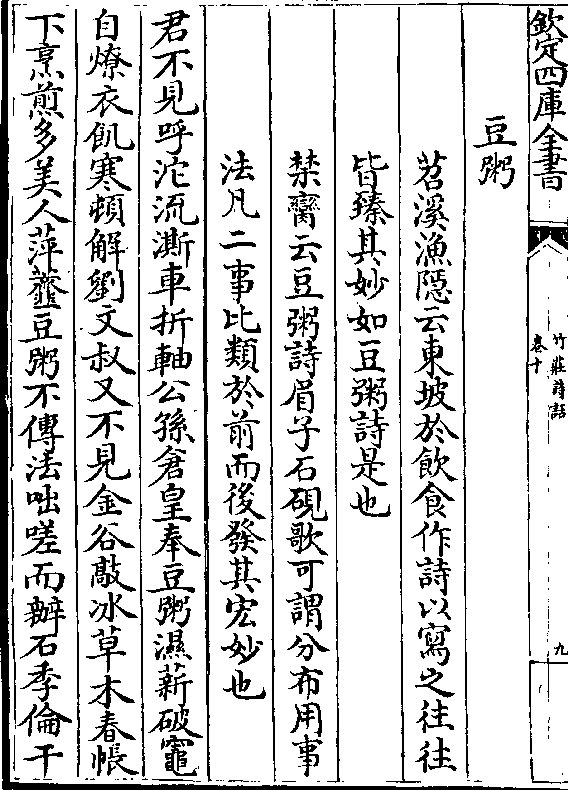 欽定四庫全書
竹莊詩話
卷十
九
豆粥
苕溪漁隱云東坡於飲食作詩以寫之往往
皆臻其妙如豆粥詩是也
禁臠云豆粥詩眉子石硯歌可謂分布用事
法凡二事比類於前而後發其宏妙也
君不見呼沱流澌車折軸公孫倉皇奉豆粥濕薪破竈
自燎衣飢寒頓解劉文叔又不見金谷敲冰草木春帳
下烹煎多美人萍虀豆粥不傳法咄嗟而辦石季倫干